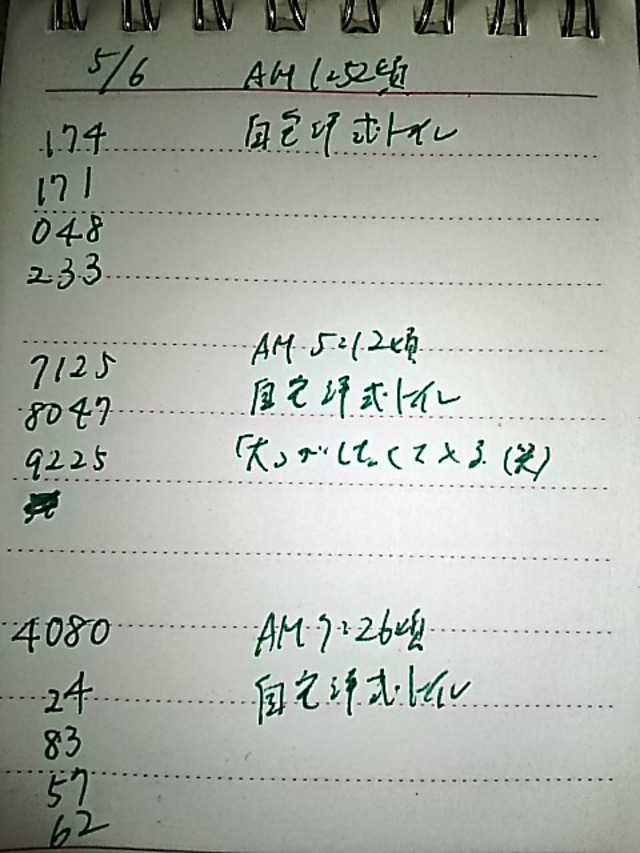 5/6 AM 1:52頃
174 自宅洋式トイレ
171
048
233
AM 5:12頃
7125
8047 自宅洋式トイレ
9225 「大」がしたくて
(笑)
4080 AM 7:26頃
24 自宅洋式トイレ
83
57
62